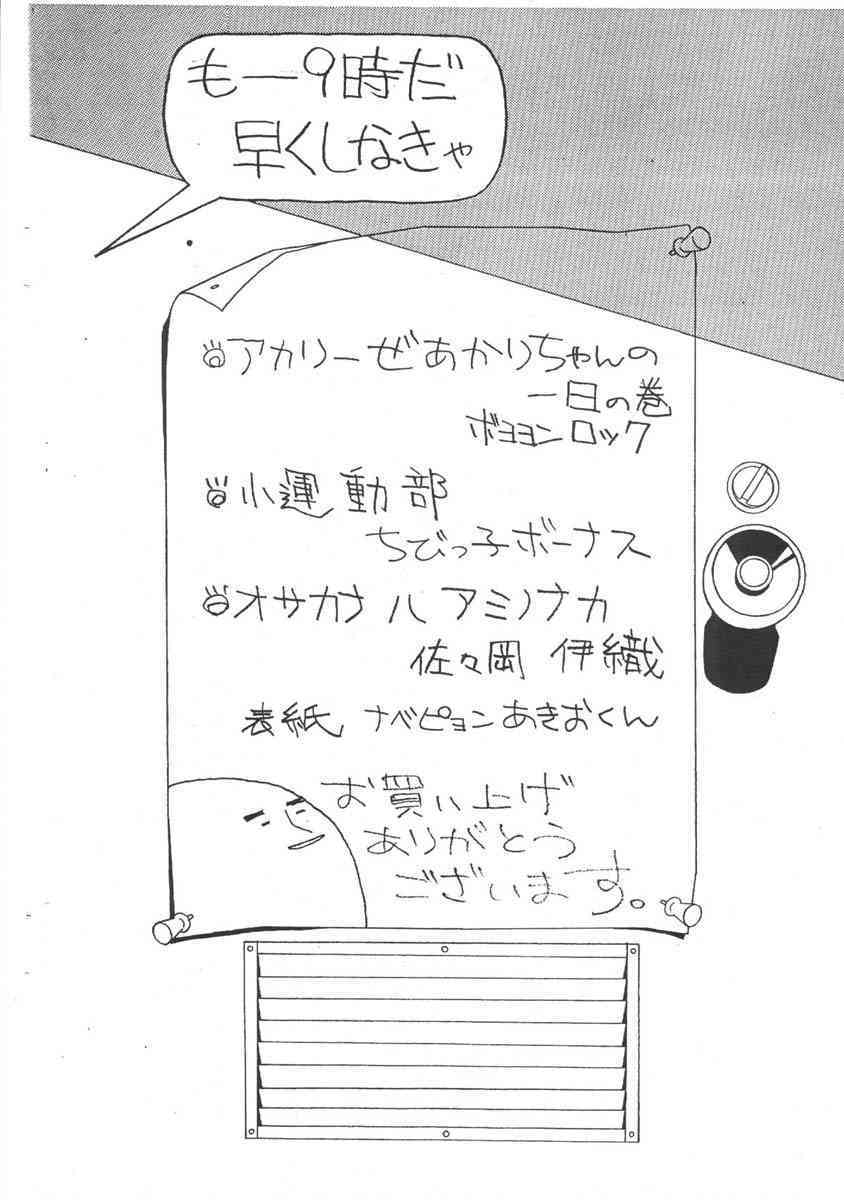 もー9時だ
早くしなきゃ
アカリーぜあかりちゃんの
一日の巻
ボヨヨンロック
小運動部
ちびっ子ボーナス
オサカナハアミノナカ
佐々岡 伊織
表紙 ナベピョンあきおくん
お買い上げ
ありがとう
ございます。